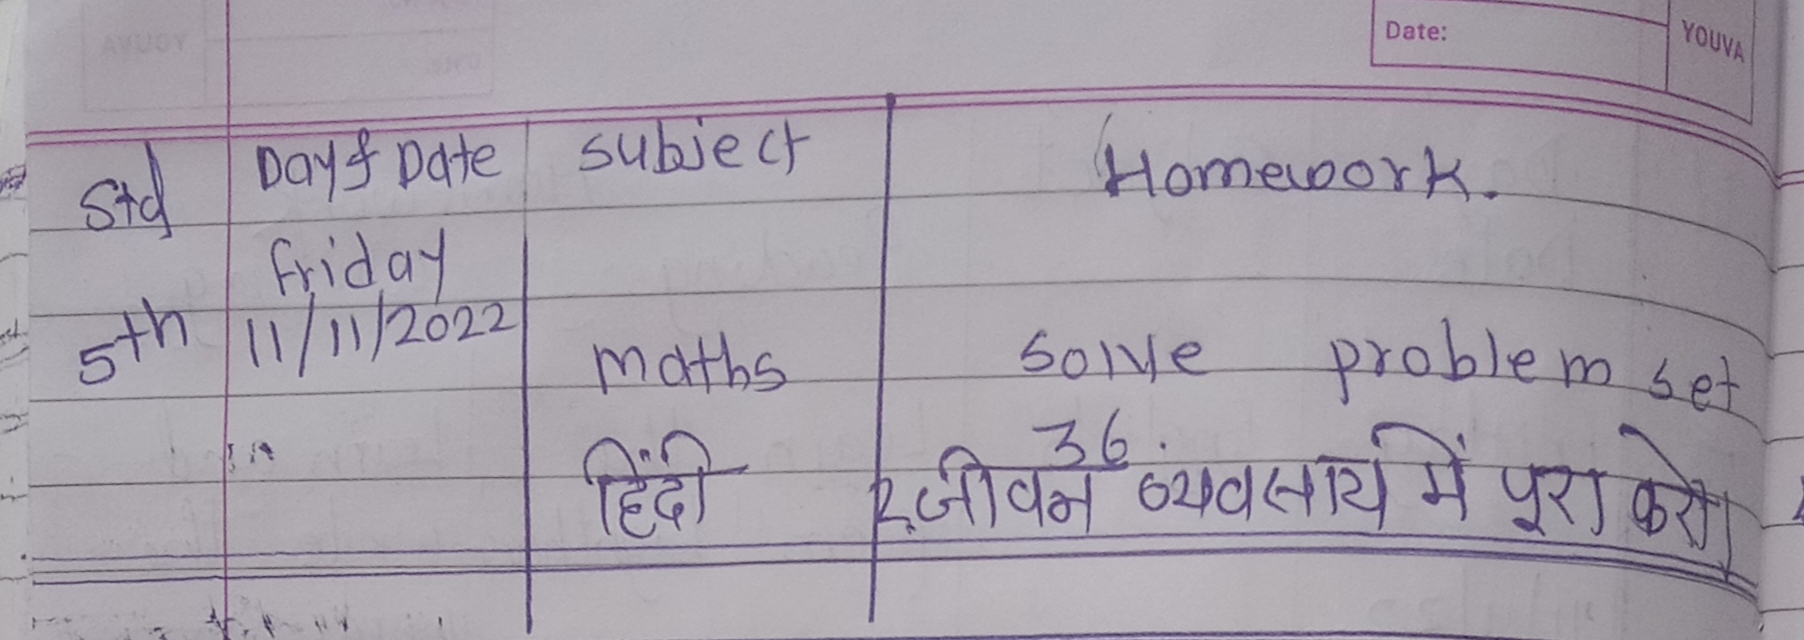 Date:
YOUVA
Std Day & Date Subject Homework.
Friday
5th 11/11/2022 maths solve problem set
36.
हिंदी २.जीवन व्यवसाय में पूरा करो।